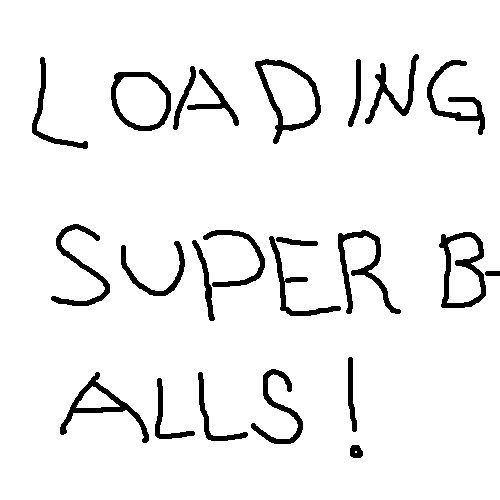 LOADING
SUPER B-
ALLS!